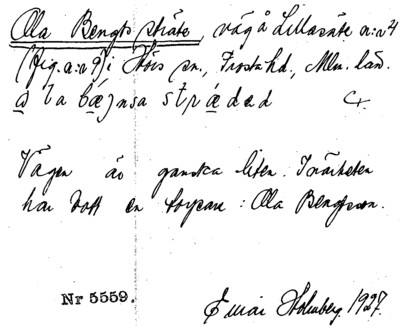 Ola Bengts sträte, väg å Lillasäte n:r 4
(fig. n:r 9) i Höös sn., Frosta hd., Mlm. län.
a la bæjnsa strædəd c.
Vägen är ganska liten. I närheten
har bott en torpare: Ola Bengtsson.
Nr 5559. Einar Holmberg 1927.